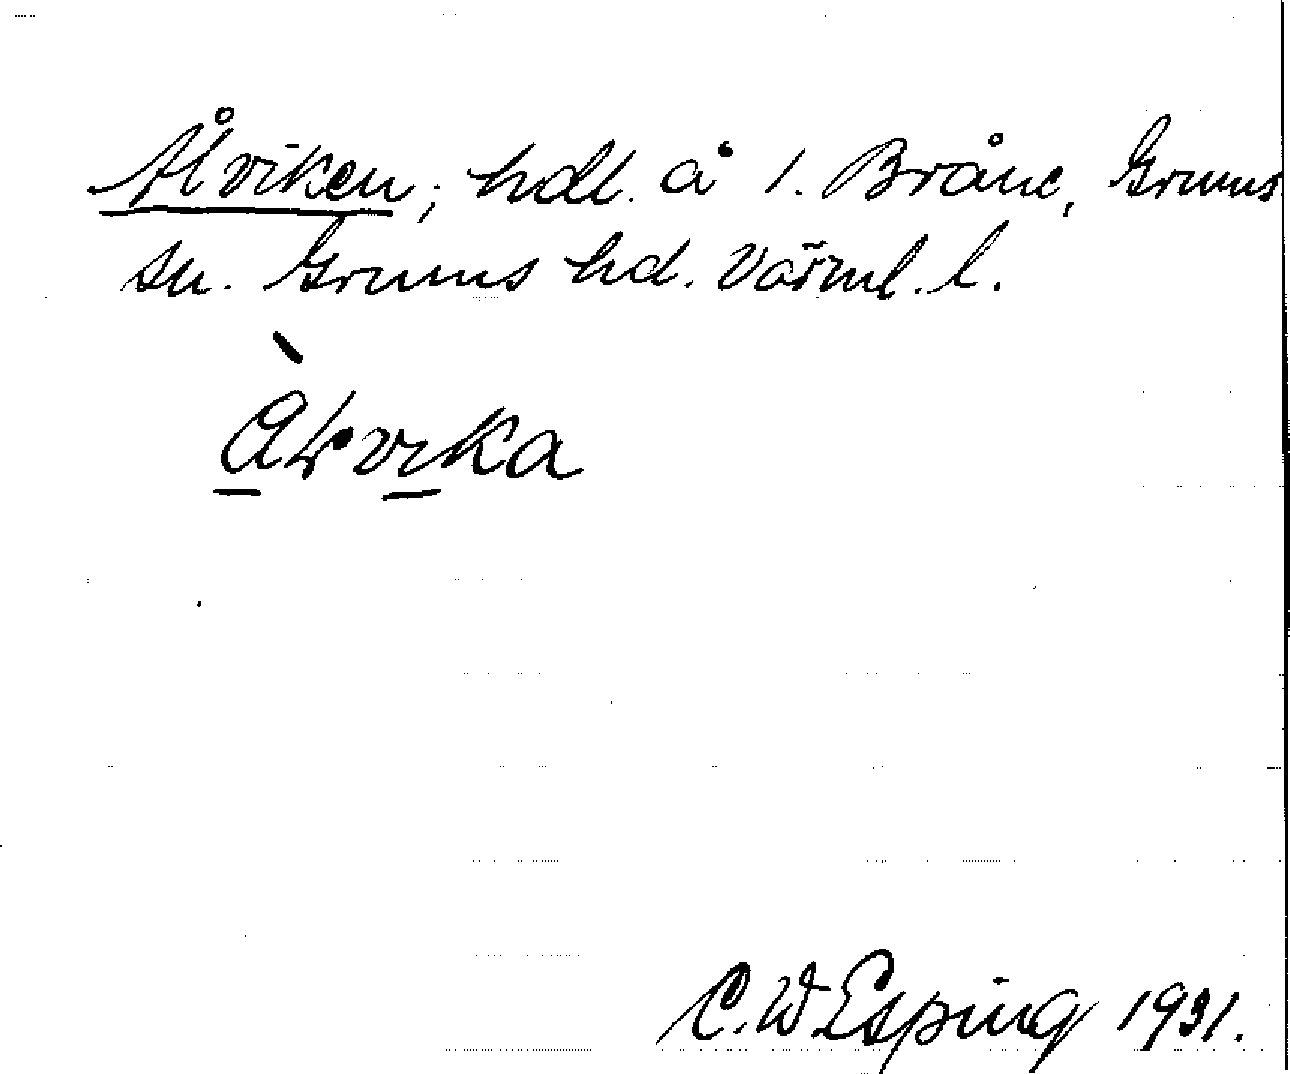 Ålviken; hdl. å 1. Bråne, Grums
sn. Grums hd. Värml. l.
C. W. Esping 1931.